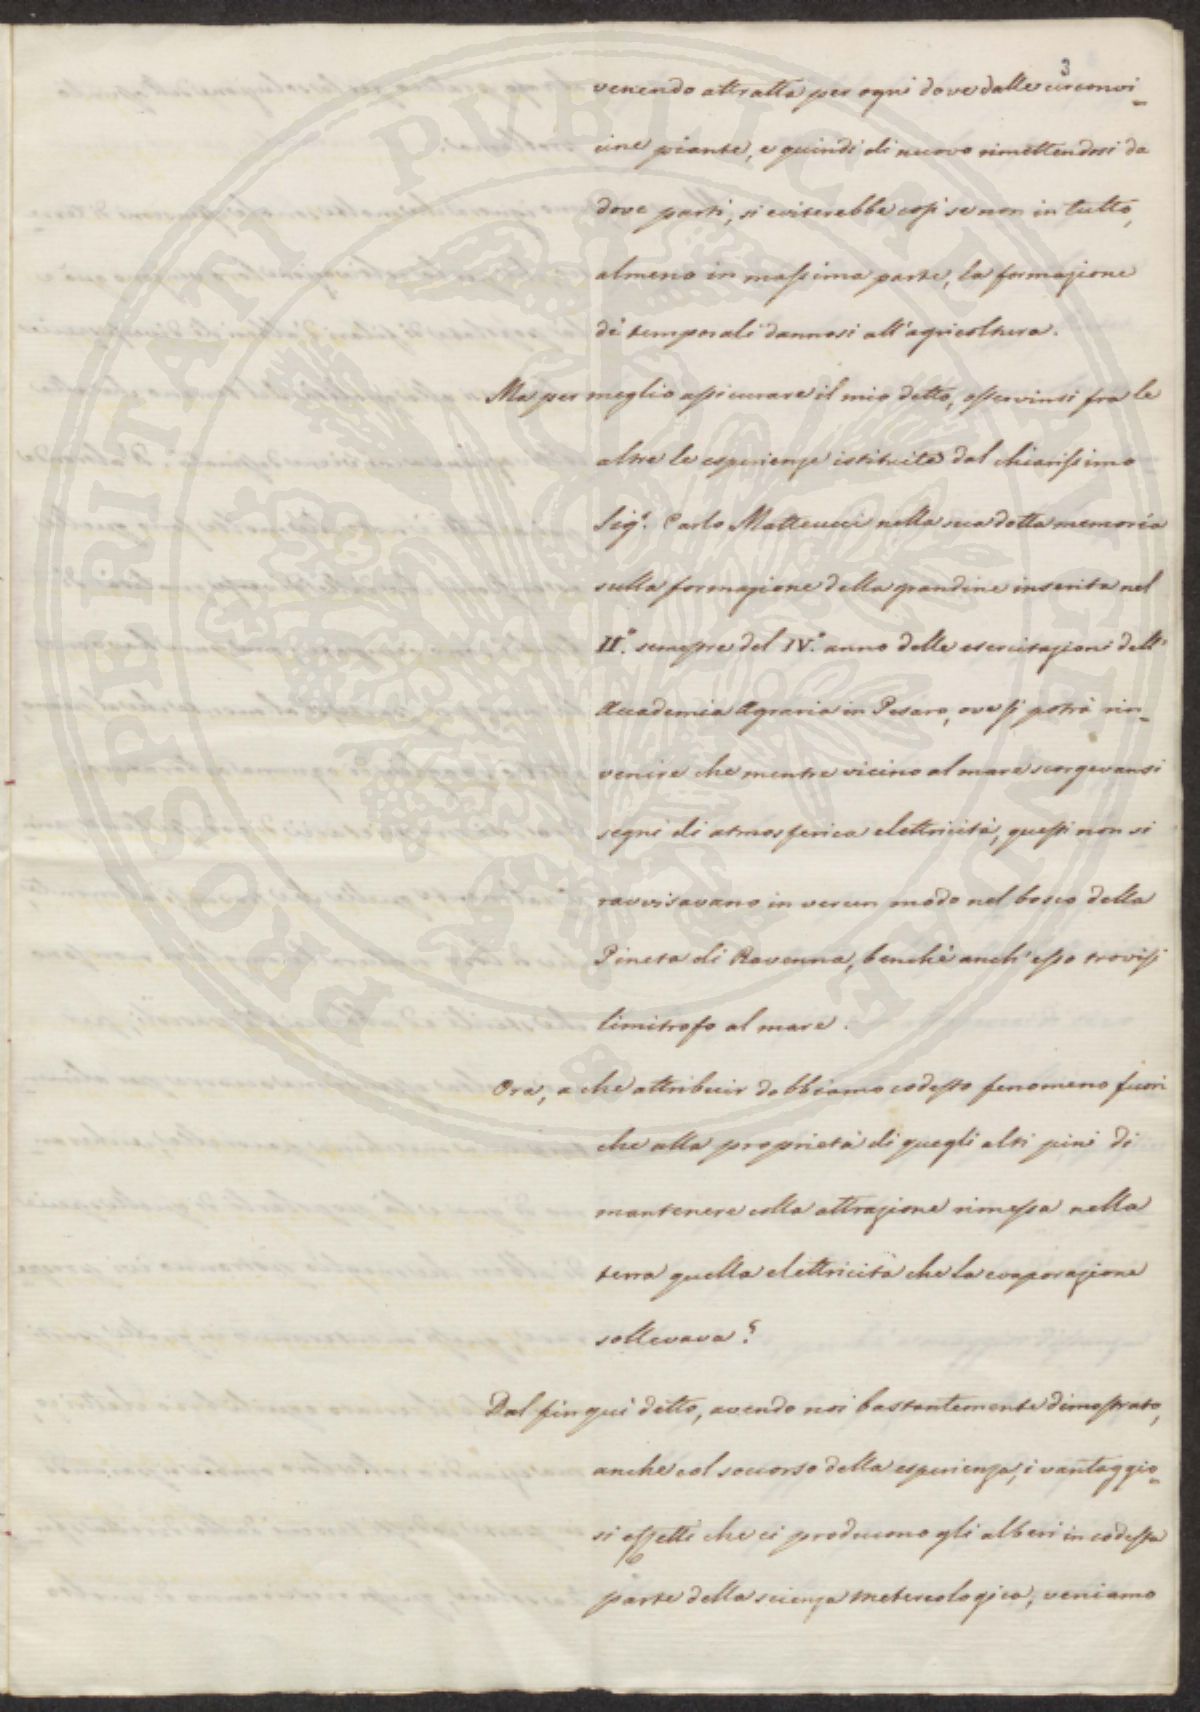 3
venendo attratta per ogni dove dalle circonvi=
cine piante, e quindi di nuovo rimettendosi da
dove partì, si eviterebbe così se non in tutto,
almeno in massima parte, la formazione
de' temporali dannosi all'agricoltura.
Ma per meglio assicurare il mio detto, osservinsi fra le
altre le esperienze istituite dal chiarissimo
Sigr. Carlo Matteucci nella sua dotta memoria
sulla formazione della grandine inserita nel
II.° semestre del IV.° anno delle esercitazioni dell'
Accademia Agraria in Pesaro, ove si potrà rin=
venire che mentre vicino al mare scorgevansi
segni di atmosferica elettricità, questi non si
ravvisavano in verun modo nel bosco della
Pineta di Ravenna, benchè anch'esso trovisi
limitrofo al mare.
Ora, a che attribuir dobbiamo codesto fenomeno fuori
che alla proprietà di quegli alti pini di
mantenere colla attrazione rimessa nella
terra quella elettricità che la evaporazione
sollevava?
Dal fin quì detto, avendo noi bastantemente dimostrato,
anche col soccorso della esperienza, i vantaggio=
si effetti che ci producono gli alberi in codesta
parte della scienza metereologica, veniamo
PROSPERITATI PVBLICAE AVGENDAE